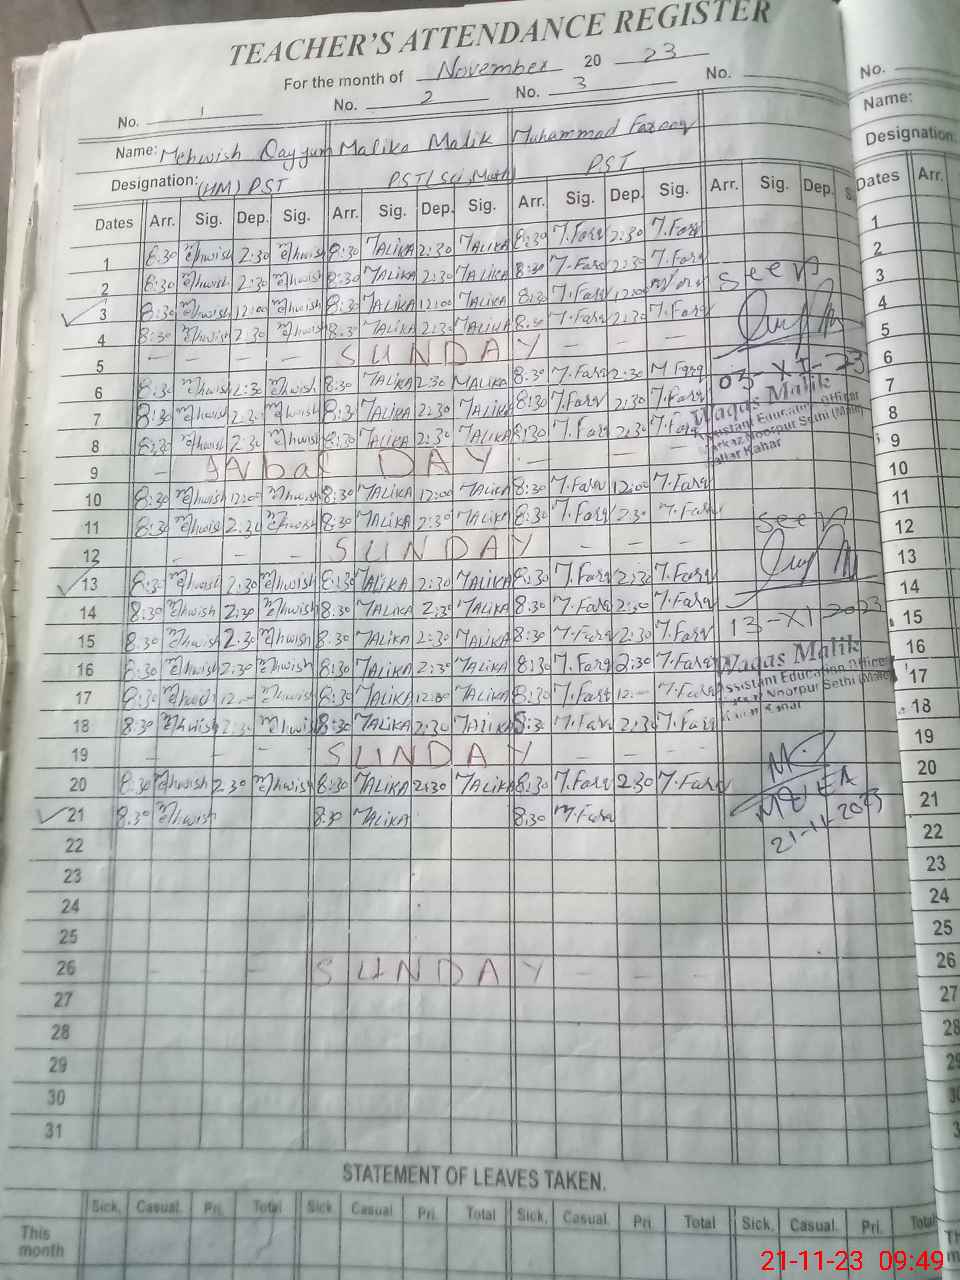 TEACHER'S ATTENDANCE REGISTER
For the month of November 20 23
No. 1 No. 2 No. 3 No. No.
Name: Mehwish Qayyum Malika Malik Muhammad Farooq Name:
Designation: (HM) PST PST (Sci, Math) PST Designation:
Dates Arr. Sig. Dep. Sig. Arr. Sig. Dep. Sig. Arr. Sig. Dep. Sig. Arr. Sig. Dep. S Dates Arr.
1 8:30 Mehwish 2:30 Mehwish 8:30 MALIKA 2:30 MALIKA 8:30 M.Farq 2:30 M.Farq 1
2 8:30 Mehwish 2:30 Mehwish 8:30 MALIKA 2:30 MALIKA 8:30 M.Farq 2:30 M.Farq seen 2
3 8:30 Mehwish 12:00 Mehwish 8:30 MALIKA 12:00 MALIKA 8:30 M.Farq 12:00 3
4 8:30 Mehwish 2:30 Mehwish 8:30 MALIKA 2:30 MALIKA 8:30 M.Farq 2:30 M.Farq 4
5 — — — — SUNDAY — — — 5
6 8:30 Mehwish 2:30 Mehwish 8:30 MALIKA 2:30 MALIKA 8:30 M.Farq 2:30 M Farq 03-XI-23 6
7 8:30 Mehwish 2:30 Mehwish 8:30 MALIKA 2:30 MALIKA 8:30 M.Farq 2:30 M.Farq Waqas Malik 7
8 8:30 Mehwish 2:30 Mehwish 8:30 MALIKA 2:30 MALIKA 8:30 M.Farq 2:30 M.Farq Assistant Education Officer 8
Markaz Noorpur Sethi (Male)
Kallar Kahar
9 — Iqbal DAY — — — 9
10 8:30 Mehwish 12:00 Mehwish 8:30 MALIKA 12:00 MALIKA 8:30 M.Farq 12:00 M.Farq 10
11 8:30 Mehwish 2:30 Mehwish 8:30 MALIKA 2:30 MALIKA 8:30 M.Farq 2:30 M.Farq seen 11
12 — — — SUNDAY — — — 12
13 8:30 Mehwish 2:30 Mehwish 8:30 MALIKA 2:30 MALIKA 8:30 M.Farq 2:30 M.Farq 13
14 8:30 Mehwish 2:30 Mehwish 8:30 MALIKA 2:30 MALIKA 8:30 M.Farq 2:30 M.Farq 14
15 8:30 Mehwish 2:30 Mehwish 8:30 MALIKA 2:30 MALIKA 8:30 M.Farq 2:30 M.Farq 13-XI 2023 15
16 8:30 Mehwish 2:30 Mehwish 8:30 MALIKA 2:30 MALIKA 8:30 M.Farq 2:30 M.Farq Waqas Malik 16
17 8:30 Mehwish 12:— Mehwish 8:30 MALIKA 12:00 MALIKA 8:30 M.Farq 12:— M.Farq Assistant Education Officer 17
Markaz Noorpur Sethi (Male)
Kallar Kahar
18 8:30 Mehwish 2:30 Mehwish 8:30 MALIKA 2:30 MALIKA 8:30 M.Farq 2:30 M.Farq 18
19 — — — SUNDAY — — — 19
20 8:30 Mehwish 2:30 Mehwish 8:30 MALIKA 2:30 MALIKA 8:30 M.Farq 2:30 M.Farq 20
21 8:30 Mehwish 8:30 MALIKA 8:30 M.Farq MEA 21
22 21-11-2023 22
23 23
24 24
25 25
26 — — — — SUNDAY — — — 26
27 27
28 28
29 29
30 30
31 3
STATEMENT OF LEAVES TAKEN.
Sick. Casual. Pri. Total Sick Casual Pri. Total Sick. Casual. Pri. Total Sick. Casual. Pri. Total
This month
21-11-23 09:49